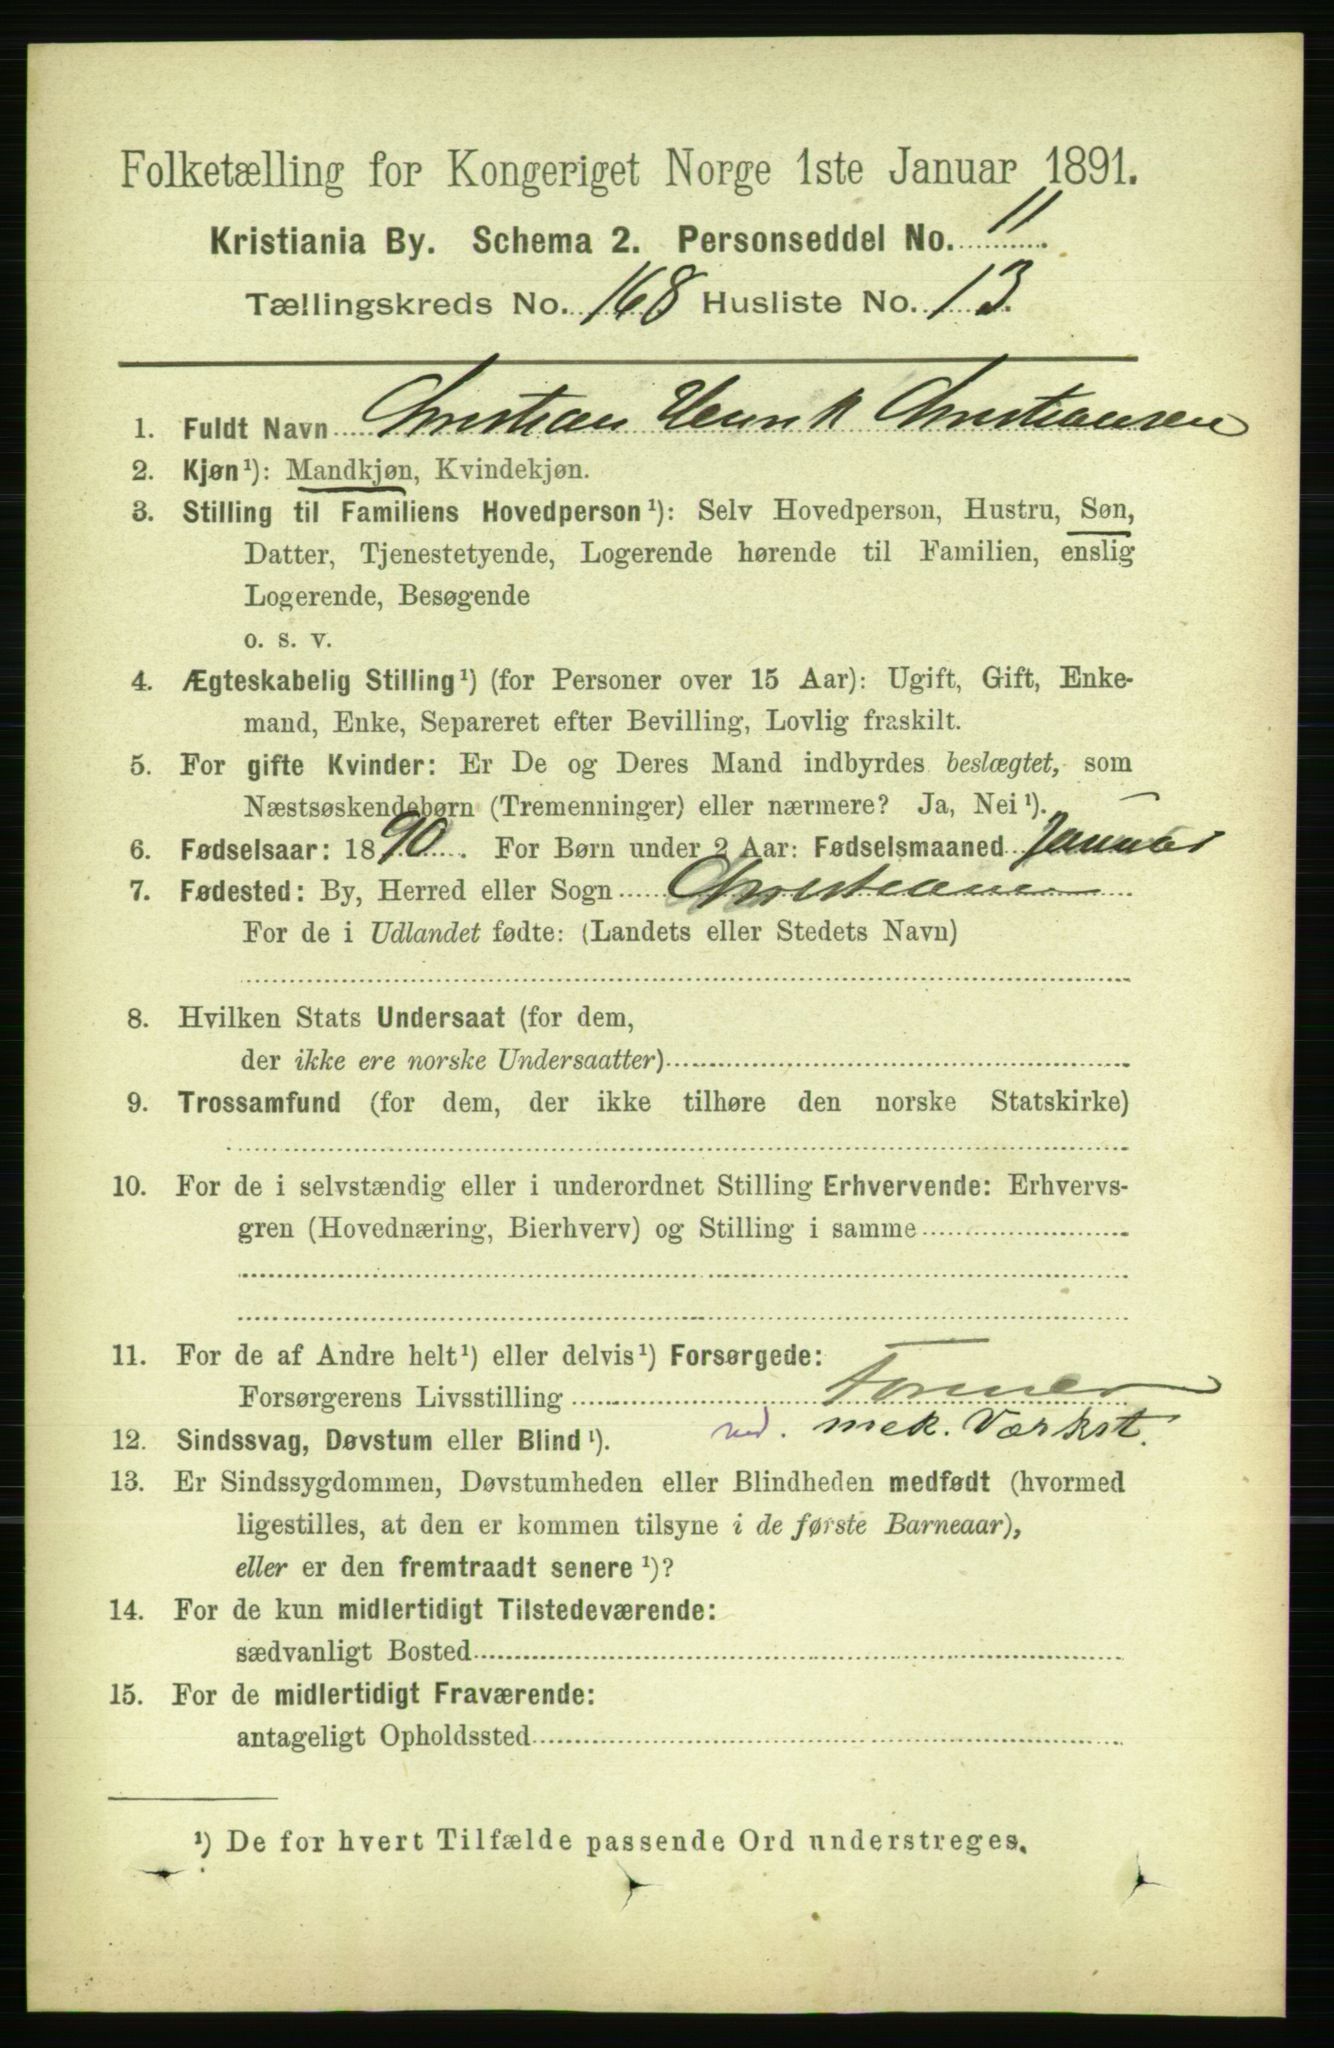 Folketælling for Kongeriget Norge 1ste Januar 1891.
Kristiania By. Schema 2. Personseddel No. 11.
Tællingskreds No. 168 Husliste No. 13.
1. Fuldt Navn Christian Henrik Christiansen
2. Kjøn¹): Mandkjøn, Kvindekjøn.
3. Stilling til Familiens Hovedperson¹): Selv Hovedperson, Hustru, Søn,
Datter, Tjenestetyende, Logerende hørende til Familien, enslig
Logerende, Besøgende
o. s. v.
4. Ægteskabelig Stilling¹) (for Personer over 15 Aar): Ugift, Gift, Enke-
mand, Enke, Separeret efter Bevilling, Lovlig fraskilt.
5. For gifte Kvinder: Er De og Deres Mand indbyrdes beslægtet, som
Næstsøskendebørn (Tremenninger) eller nærmere? Ja, Nei¹).
6. Fødselsaar: 1890. For Børn under 2 Aar: Fødselsmaaned Januar
7. Fødested: By, Herred eller Sogn Christiania
For de i Udlandet fødte: (Landets eller Stedets Navn)
8. Hvilken Stats Undersaat (for dem,
der ikke ere norske Undersaatter)
9. Trossamfund (for dem, der ikke tilhøre den norske Statskirke)
10. For de i selvstændig eller i underordnet Stilling Erhvervende: Erhvervs-
gren (Hovednæring, Bierhverv) og Stilling i samme
11. For de af Andre helt¹) eller delvis¹) Forsørgede:
Forsørgerens Livsstilling Former
ved. mek. Værkst.
12. Sindssvag, Døvstum eller Blind¹).
13. Er Sindssygdommen, Døvstumheden eller Blindheden medfødt (hvormed
ligestilles, at den er kommen tilsyne i de første Barneaar),
eller er den fremtraadt senere¹)?
14. For de kun midlertidigt Tilstedeværende:
sædvanligt Bosted
15. For de midlertidigt Fraværende:
antageligt Opholdssted
¹) De for hvert Tilfælde passende Ord understreges.